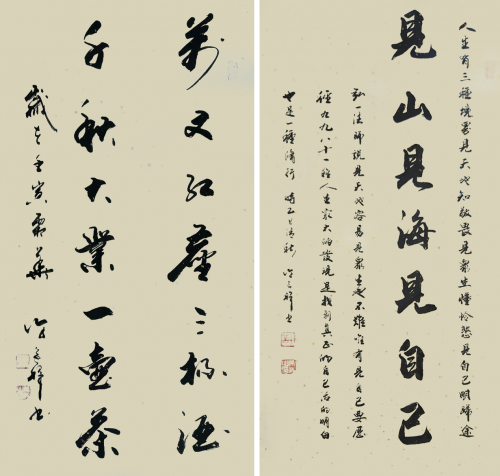 人生有三種境界見天地知敬畏見衆生懂怜愍見自己明歸途
見山見海見自己
弘一法師説見天地容易見衆生也不難唯有見自己要歷
經九九八十一難人生最大的發現是找到真正的自己后的明白
也是一種修行 時乙巳清秋
萬丈红塵三杯酒
千秋大業一壶茶
歲在壬寅